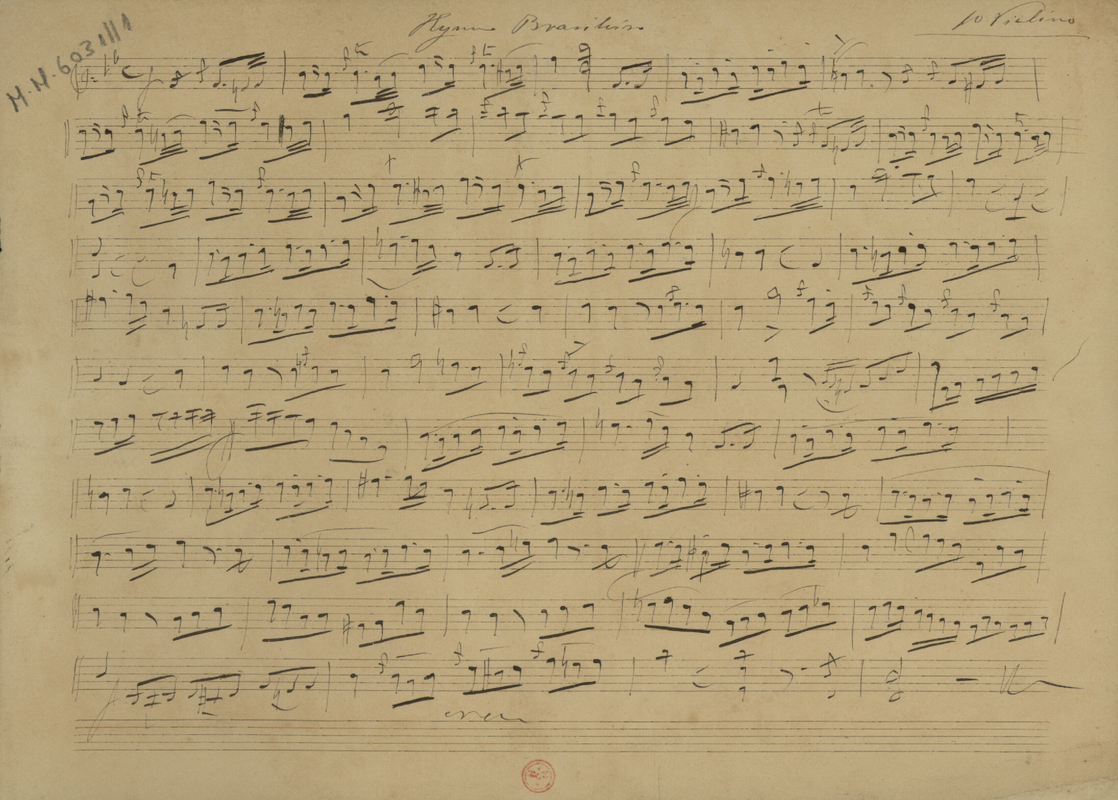 Hymno Brasileiro
1o Violino
M.M.6031/1
cresc